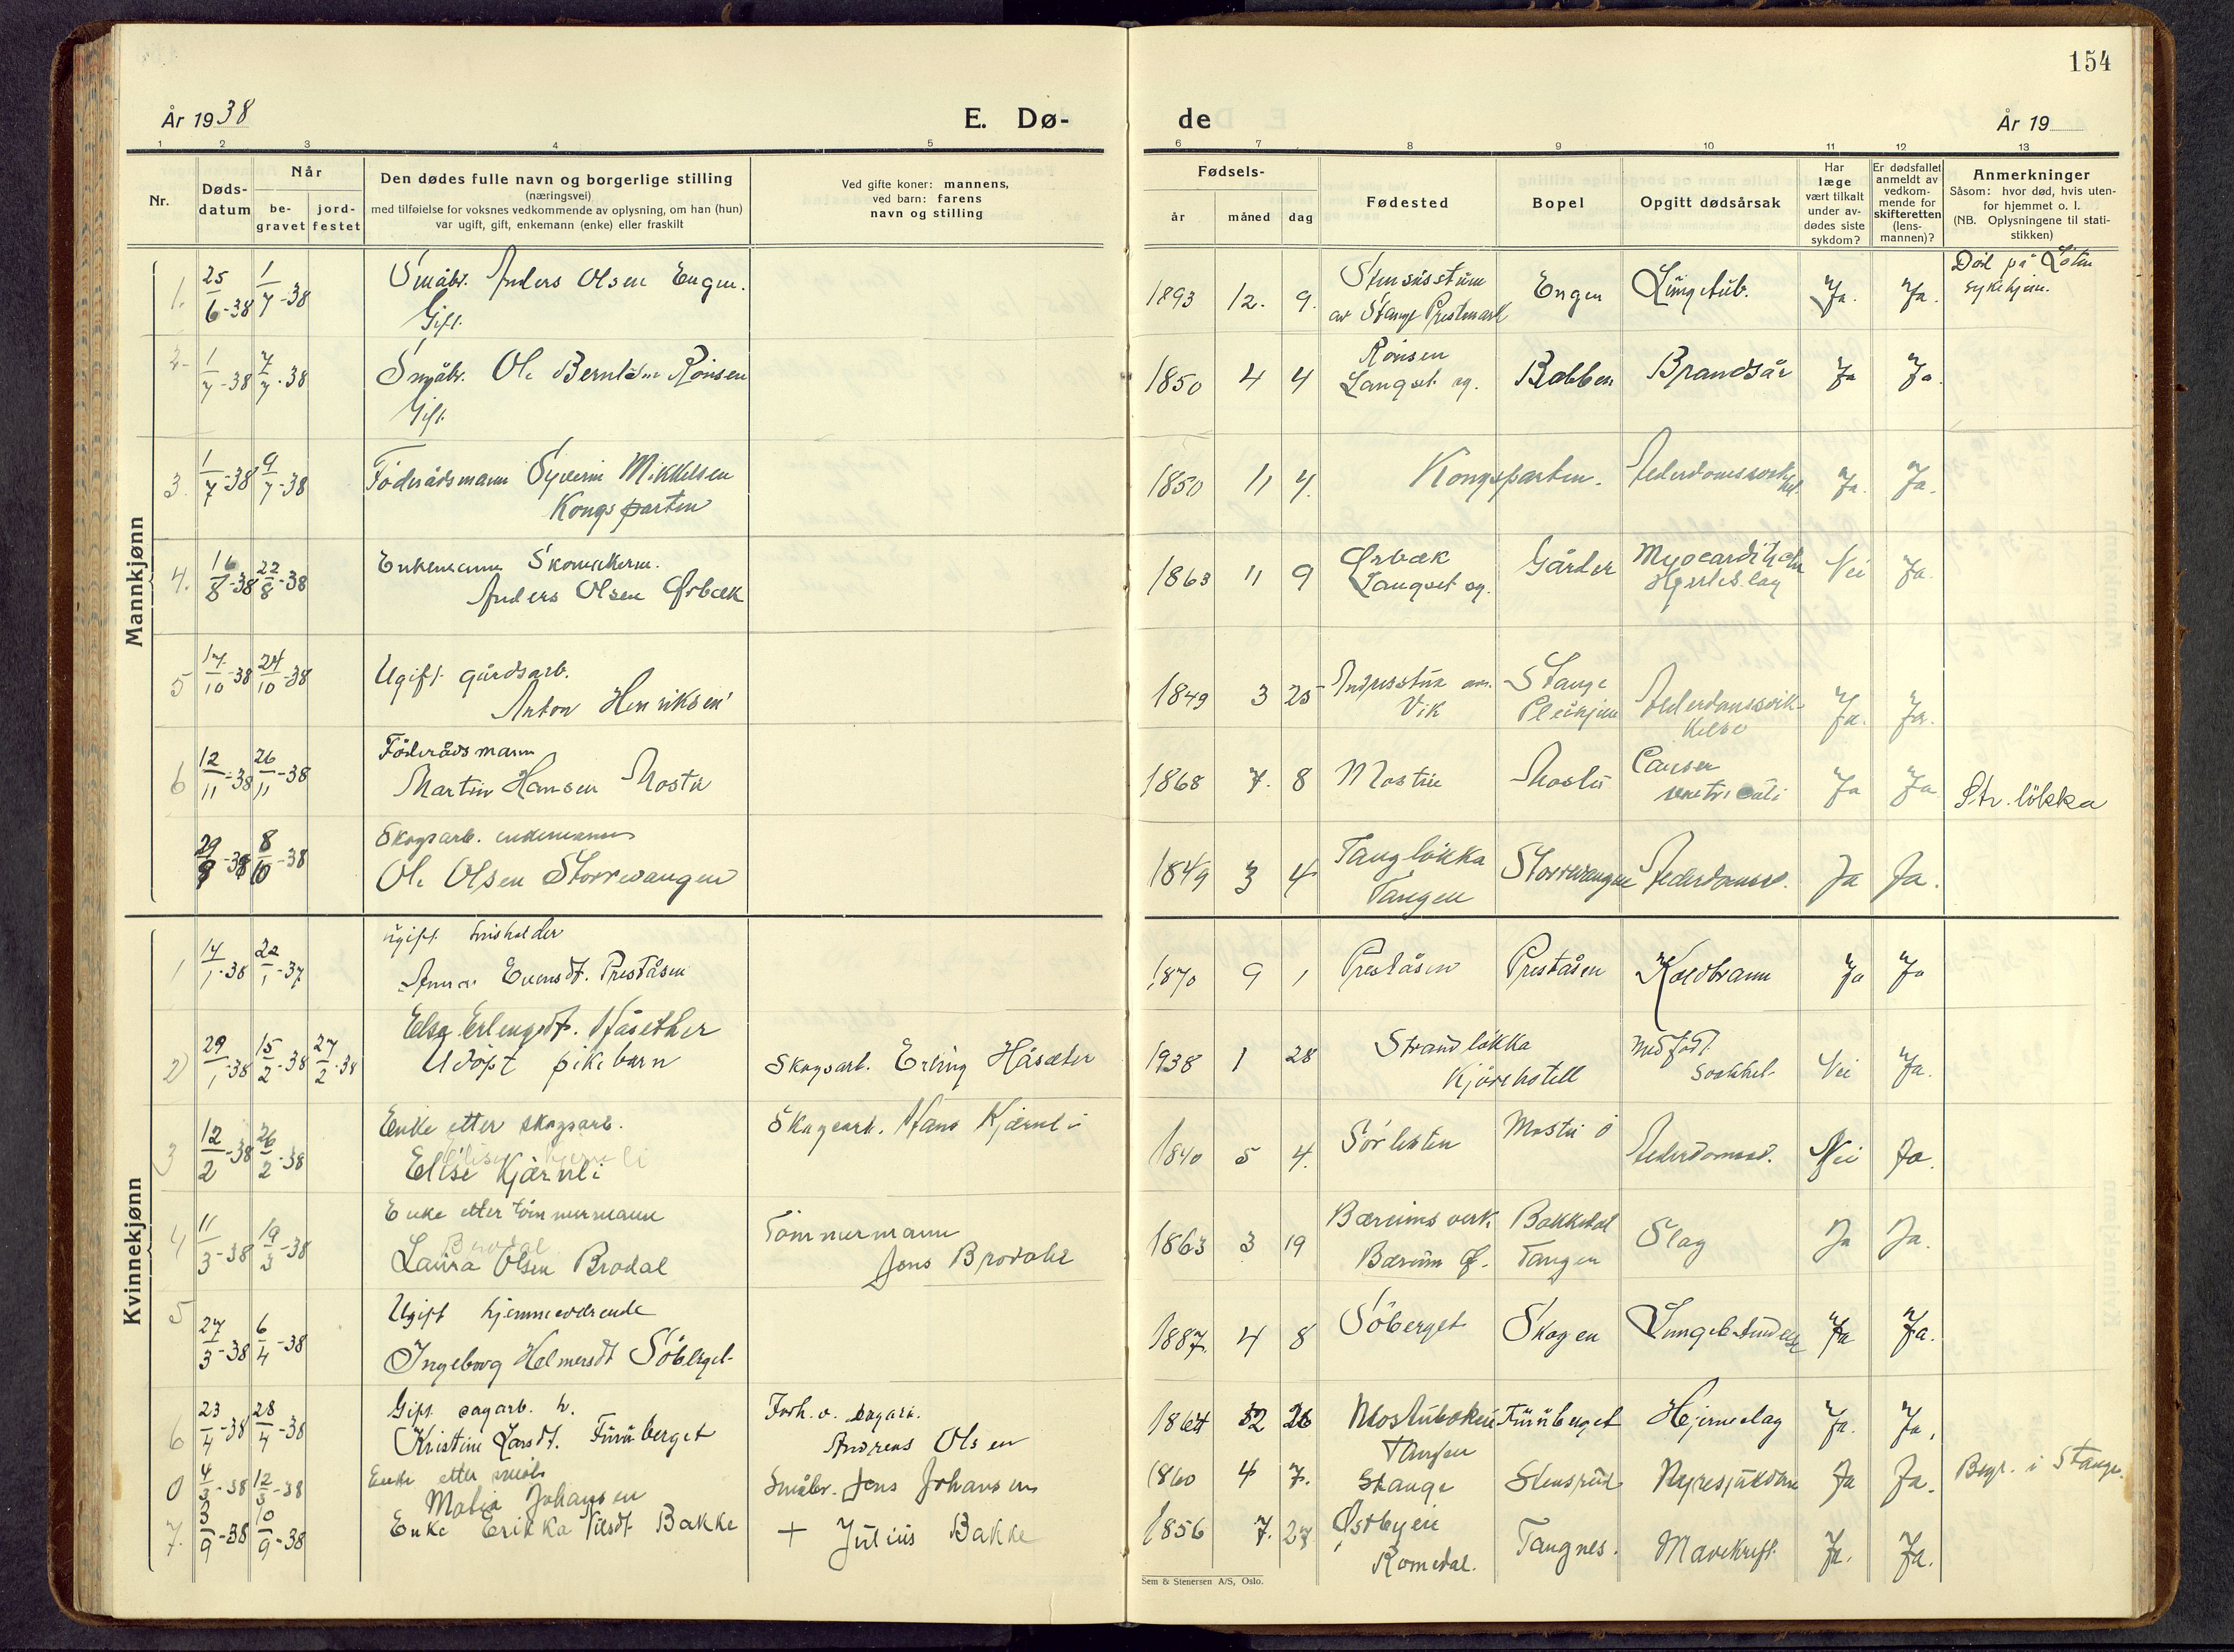 154
År 1938
E. Dø-
de
År 19
1 2 3 4 5 6 7 8 9 10 11 12 13
Nr.
Døds-
datum
Når
be-
gravet
jord-
festet
Den dødes fulle navn og borgerlige stilling
(næringsvei)
med tilføielse for voksnes vedkommende av oplysning, om han (hun)
var ugift, gift, enkemann (enke) eller fraskilt
Ved gifte koner: mannens,
ved barn: farens
navn og stilling
Fødsels-
år måned dag
Fødested
Bopel
Opgitt dødsårsak
Har
læge
vært tilkalt
under av-
dødes siste
sykdom?
Er dødsfallet
anmeldt av
vedkom-
mende for
skifteretten
(lens-
mannen)?
Anmerkninger
Såsom: hvor død, hvis uten-
for hjemmet o. l.
(NB. Oplysningene til stati-
stikken)
Mannkjønn
1. 25/6-38 1/7-38 Småbr. Anders Olsen Engen.
Gift.
1893 12. 9. av Stange Prestmark Engen Ja. Ja.
Død på Löten
sykehjem.
2. 1/7-38 7/7-38 Småbr. Ole Berntsen Rönsen
Gift.
1850 4 4 Rönsen
Langset og. Robben Ja Ja.
3. 1/7-38 9/7-38 Föderådsmann Syverin Mikkelsen
Kongsparten
1850 11 4. Kongsparten. Ja. Ja.
4. 16/8-38 22/8-38 Enkemann Skomakerm.
Anders Olsen Ørbæk
1863 11 9 Ørbæk
Langset og. Gårder Nei Ja.
5 17/10-38 24/10-38 Ugift gårdsarb.
Anton Henriksen
1849 3 25 Vik Stange
Pleiehjem Ja. Ja.
6 12/11-38 26/11-38 Föderådsmann
Martin Hansen Mostu
1868 7. 8 Mostue Mostu Cancer
ventriculi Ja Ja Str. lökka
29/9-38 8/10-38 Skogsarb. enkemann
Ole Olsen Storrvangen
1849 3 4 Tanglökka
Tangen Storrvangen Ja Ja.
Kvinnekjønn
1 14/1-38 22/1-37 ugift husholder
Anna Evensdt. Preståsen
1870 9 1 Preståsen Preståsen Koldbrann Ja Ja
2 29/1-38 15/2-38 27/2-38 Elsa Erlingsdt. Håsether
Udöpt pikebarn Skogsarb. Erling Håsæter
1938 1 28 Strandlökka
Kjörehotell Medfødt
svakhet Nei Ja.
3 12/2-38 26/2-38 Enke etter skogsarb.
Elise Kjærnli Skogsarb. Hans Kjærnli
1840 5 4. Sörlisten Mostu ö Nei Ja.
4 11/3-38 19/3-38 Enke etter tömmermann
Brodal
Laura Olsen Brodal Tömmermann
Jens Brodahl
1863 3 19 Bærums verk
Bærum Bakkedal
Tangen Slag Ja Ja.
5 27/3-38 6/4-38 Ugift hjemmeværende
Ingeborg Helmersdt Söberget
1887. 4 8 Söberget Skogen Ja Ja.
6 23/4-38 28/4-38 Gift sagarb. h.
Kristine Larsdt. Furuberget Forh. v. sagarb.
Andreas Olsen
1864 12 26 Tangen Furuberget Hjerneslag Ja. Ja.
0 4/5-38 12/5-38 Enke etter småb
Malia Johansen Småbr. Jens Johansen
1860 4 7. Stange Stensrud Nyresykdom Ja Ja. Begr. i Stange.
7. 3/9-38 10/9-38 Enke Erikka Nilsdt Bakke + Julius Bakke
1856 7. 27 Østbyeie
Romedal. Tangnes. Mavekreft Ja. Ja.
Sem & Stenersen A/S, Oslo.